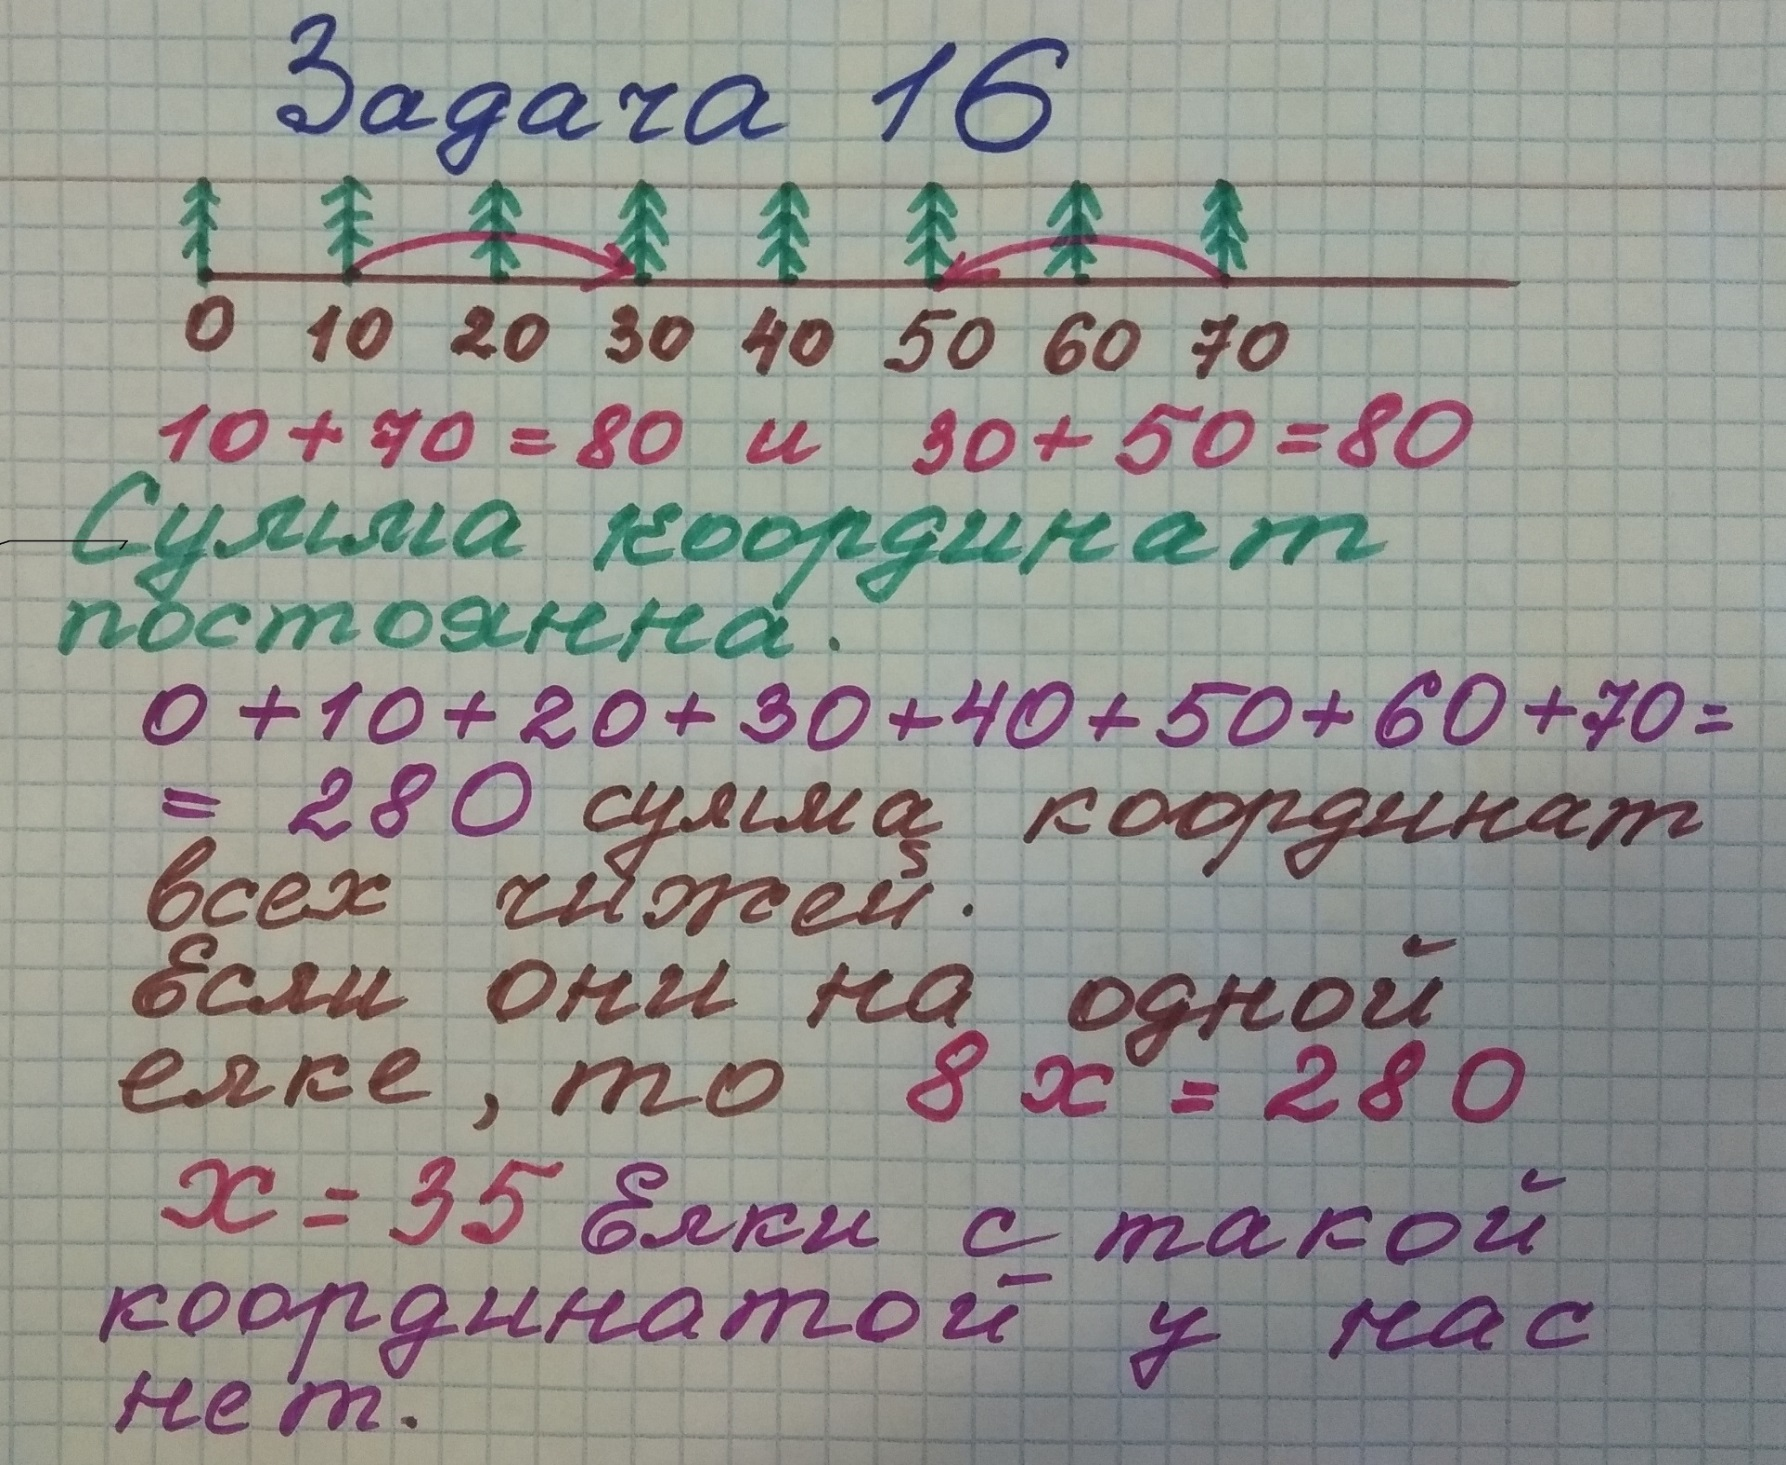 Задача 16
0 10 20 30 40 50 60 70
10 + 70 = 80 и 30 + 50 = 80
Сумма координат
постоянна.
0 + 10 + 20 + 30 + 40 + 50 + 60 + 70 =
= 280 сумма координат
всех чижей.
Если они на одной
елке, то 8 x = 280
x = 35 Елки с такой
координатой у нас
нет.